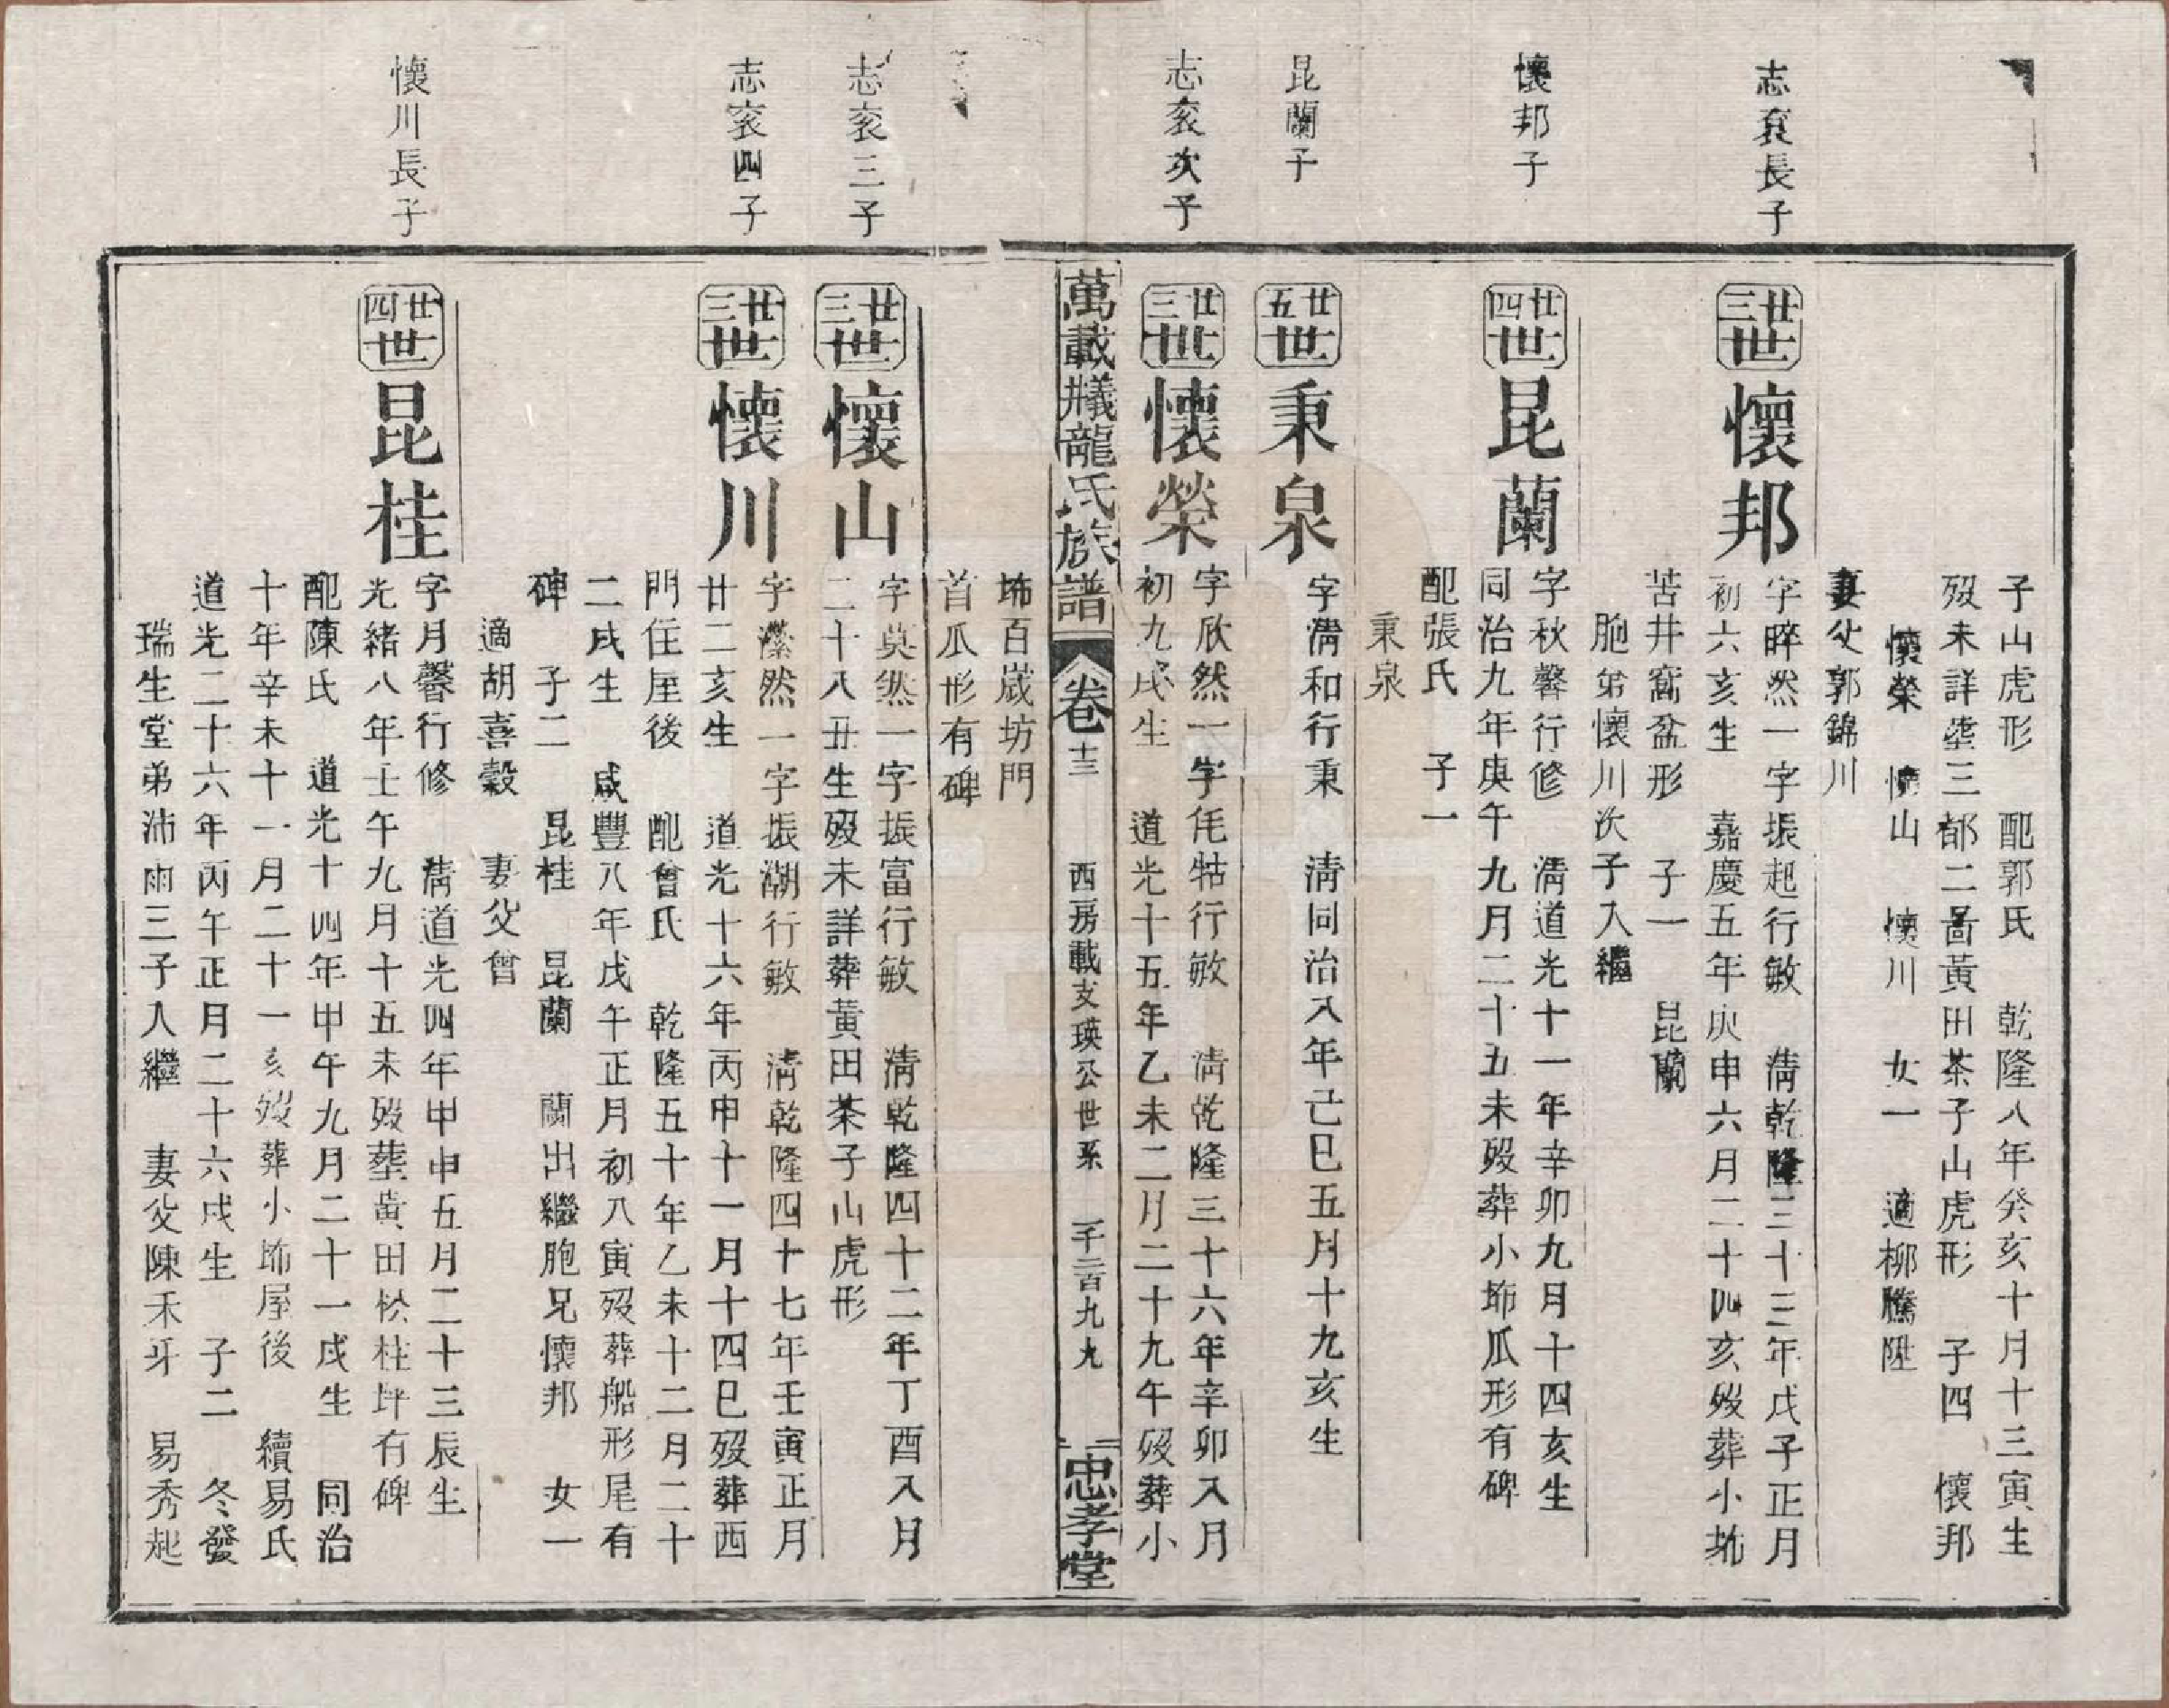 子山虎形 配郭氏 乾隆八年癸亥十月十三寅生
歿未詳塟三都二啚黃田茶子山虎形 子四 懷邦
懷榮 懷山 懷川 女一 適柳騰陞
妻父郭錦川
志袞長子
廿三世 懷邦
字睟然一字振起行敏 淸乾隆三十三年戊子正月
初六亥生 嘉慶五年庚申六月二十四亥歿葬小㘵
苦井窩盆形 子一 昆蘭
胞弟懷川次子入繼
懷邦子
廿四世 昆蘭
字秋馨行修 淸道光十一年辛卯九月十四亥生
同治九年庚午九月二十五未歿葬小㘵瓜形有碑
配張氏 子一
秉泉
昆蘭子
廿五世 秉泉
字淸和行秉 淸同治八年己巳五月十九亥生
志袞次子
廿三世 懷榮
字欣然一字㲌牯行敏 淸乾隆三十六年辛卯八月
初九戌生 道光十五年乙未二月二十九午歿葬小
萬載㸢龍氏族譜 卷十三 西房載支瑛公世系 一千二百九九 忠孝堂
㘵百歲坊門
首瓜形有碑
志袞三子
廿三世 懷山
字奠然一字振富行敏 淸乾隆四十二年丁酉八月
二十八丑生歿未詳葬黃田茶子山虎形
志袞四子
廿三世 懷川
字瀠然一字振湖行敏 淸乾隆四十七年壬寅正月
廿二亥生 道光十六年丙申十一月十四巳歿葬西
門住屋後 配曾氏 乾隆五十年乙未十二月二十
二戌生 咸豐八年戊午正月初八寅歿葬船形尾有
碑 子二 昆桂 昆蘭 蘭出繼胞兄懷邦 女一
適胡喜穀 妻父曾
懷川長子
廿四世 昆桂
字月馨行修 淸道光四年甲申五月二十三辰生
光緒八年壬午九月十五未歿葬黃田松柱坪有碑
配陳氏 道光十四年甲午九月二十一戌生 同治
十年辛未十一月二十一亥歿葬小㘵屋後 續易氏
道光二十六年丙午正月二十六戌生 子二 冬發
瑞生堂弟沛雨三子入繼 妻父陳禾牙 易秀起